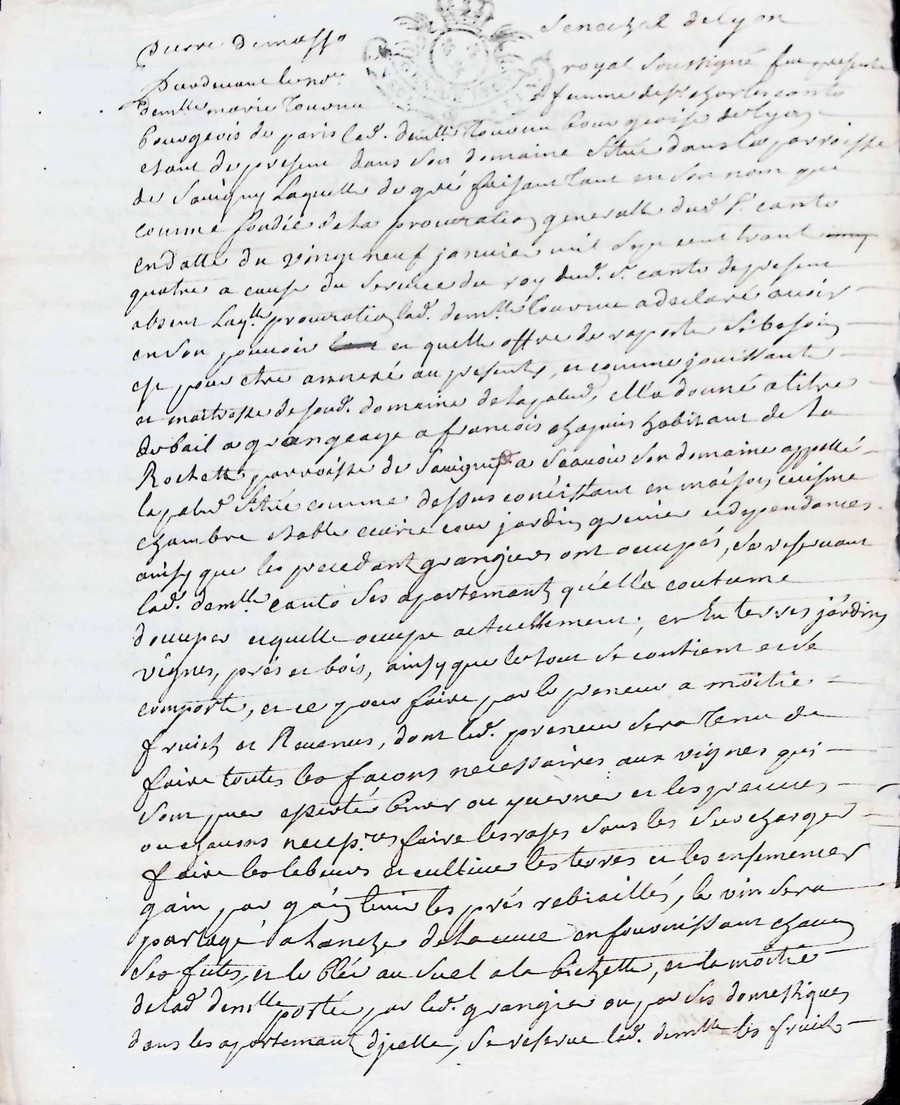 pierre demasso senechal de Lyon
Pardevant le no.re royal soussigné fut presente
dem.lle marie tournu femme de s.r charles canto
bourgeois de paris lad. dem.lle tournu bourgeoise de Lyon
etant de present dans son domaine situé dans la parroisse
de Savigny Laquelle de gré faisant tant en son nom que
comme fondée de la procuration generalle dud. s.r canto
en datte du vingt neuf janvier mil sept cent trante
quatre a cause du service du roy dud. s.r canto de present
absent Laq.lle procuration lad. dem.lle tournu a declaré avoir
en son pouvoir et quelle offre de raporter si besoin
est pour etre annexé au presents, et comme jouissante
et maitresse de sond. domaine de la palud, ella donné a titre
de bail a grangeage a francois chapuis habitant de la
Rochette parroisse de Savigny a scavoir son domaine appellé
lapalud situé comme dessus consistant en maison, cuisine
chambre etable ecurie cour jardin grenier et dependances
ainsy que les precedant grangiers ont occupés, se reservant
lad. dem.lle canto ses apartemant qu'ella coutume
doccuper et quelle occupe actuellement; et en terres jardin
vignes, prés et bois, ainsy que le tout se contient et se
comporte, et ce pour faire par le preneur a moitié
fruich et Revenus, dont led. preneur sera tenu de
faire toutes les façons necessaires aux vignes qui
sont
ou chausons necess.res faire les rases sans les surcharger
faire les lebeurs et cultiver les terres et les ensemencer
gain par gain tenir les prés rebiaillés, le vin sera
partagé a lanche de la cuve en fournissant chacun
ses futes, et le bled au suel a la bichette, et la moitié
de lad. demlle portée par led. grangier ou par ses domestiques
dans les apartemant d'jcelle, se reserve lad. demlle les fruich